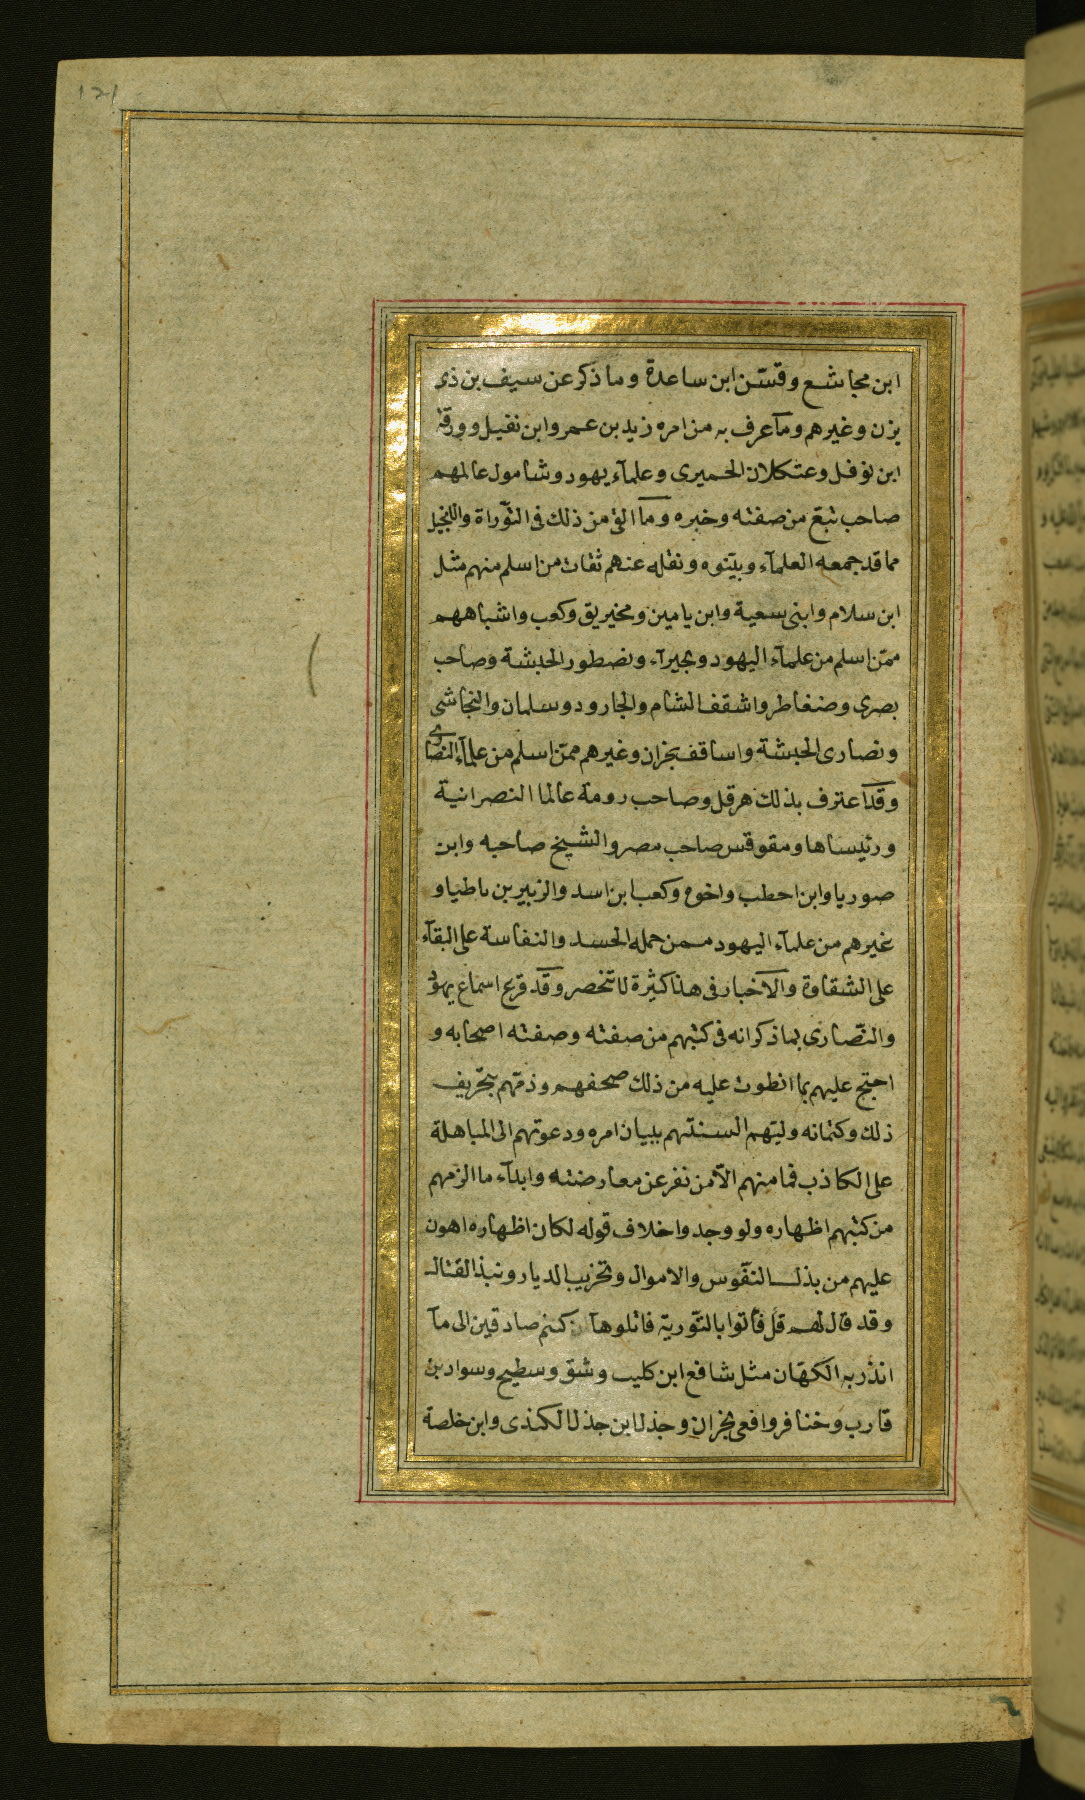 121
ابن مجاشع وقسّ بن ابن ساعدة وما ذكر عن سيف بن ذى
يزن وغيرهم ومآ عرف به من امره زيد بن عمرو ابن نفيل وورقة
ابن نوفل وعثكلان الحميرى وعلمآء يهود وشامول عالمهم
صاحب تبّع من صفته وخبره ومآ الفى من ذلك فى التوراة والانجيل
مما قد جمعه العلمآء وبيّنوه ونقله عنهم ثقات من اسلم منهم مثل
ابن سلام وابنى سعية وابن يامين ومخيريق وكعب واشباههم
ممّن اسلم من علمآء اليهود وبحيرآء ونصطور الحبشة وصاحب
بصرى وضغاطر واشقف الشام والجارود وسلمان والنجاشى
ونصارى الحبشة واساقف نجران وغيرهم ممّن اسلم من علمآء النصارى
وقد اعترف بذلك هرقل وصاحب رومة عالما النصرانية
ورئيساها ومقوقس صاحب مصر والشيخ صاحبه وابن
صوريا وابن احطب واخوه وكعب ابن اسد والزبير بن باطيا و
غيرهم من علمآء اليهود ممن حمله الحسد والنفاسة على البقآء
على الشقاوة والآخبار فى هذا كثيرة لا تنحصر وقد قرع اسماع يهود
والنّصارى بما ذكر انه فى كتبهم من صفته وصفته اصحابه و
احتج عليهم بما انطوت عليه من ذلك صحفهم وذمّهم بتحريف
ذلك وكتمانه وليّهم السنتهم ببيان امره ودعوتهم الى المباهلة
على الكاذب فما منهم الاّ من نفر عن معارضته وابدآء ما الزمهم
من كتبهم اظهاره ولو وجدوا خلاف قوله لكان اظهاره اهون
عليهم من بذل النفوس والاموال وتخريب الديار ونبذ القتال
وقد قال لهم قل فأتوا بالتّورية فاتلوهآ ان كنتم صادقين الى مآ
انذر به الكهّان مثل شافع ابن كليب وشق وسطيح وسواد بن
قارب وخنافر وافعى نجران وجذل ابن جذل الكندى وابن خلصة